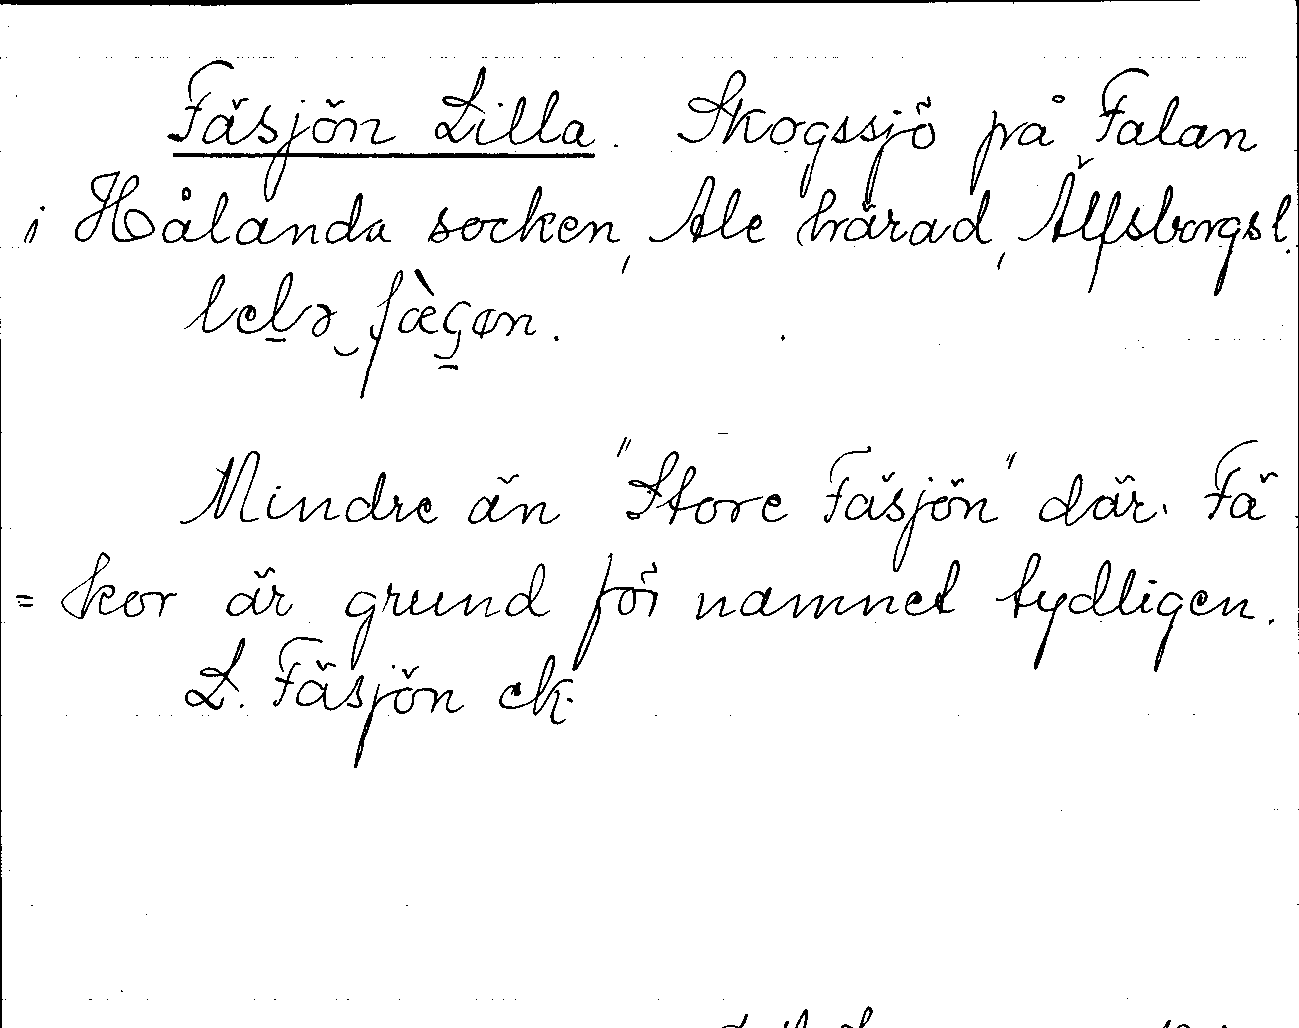 Fäsjön Lilla. Skogssjö på Falan
i Hålanda socken, Ale härad, Älfsborgsl.
Mindre än "Store Fäsjön" där. Fä
= kor är grund för namnet tydligen.
L. Fäsjön ek.